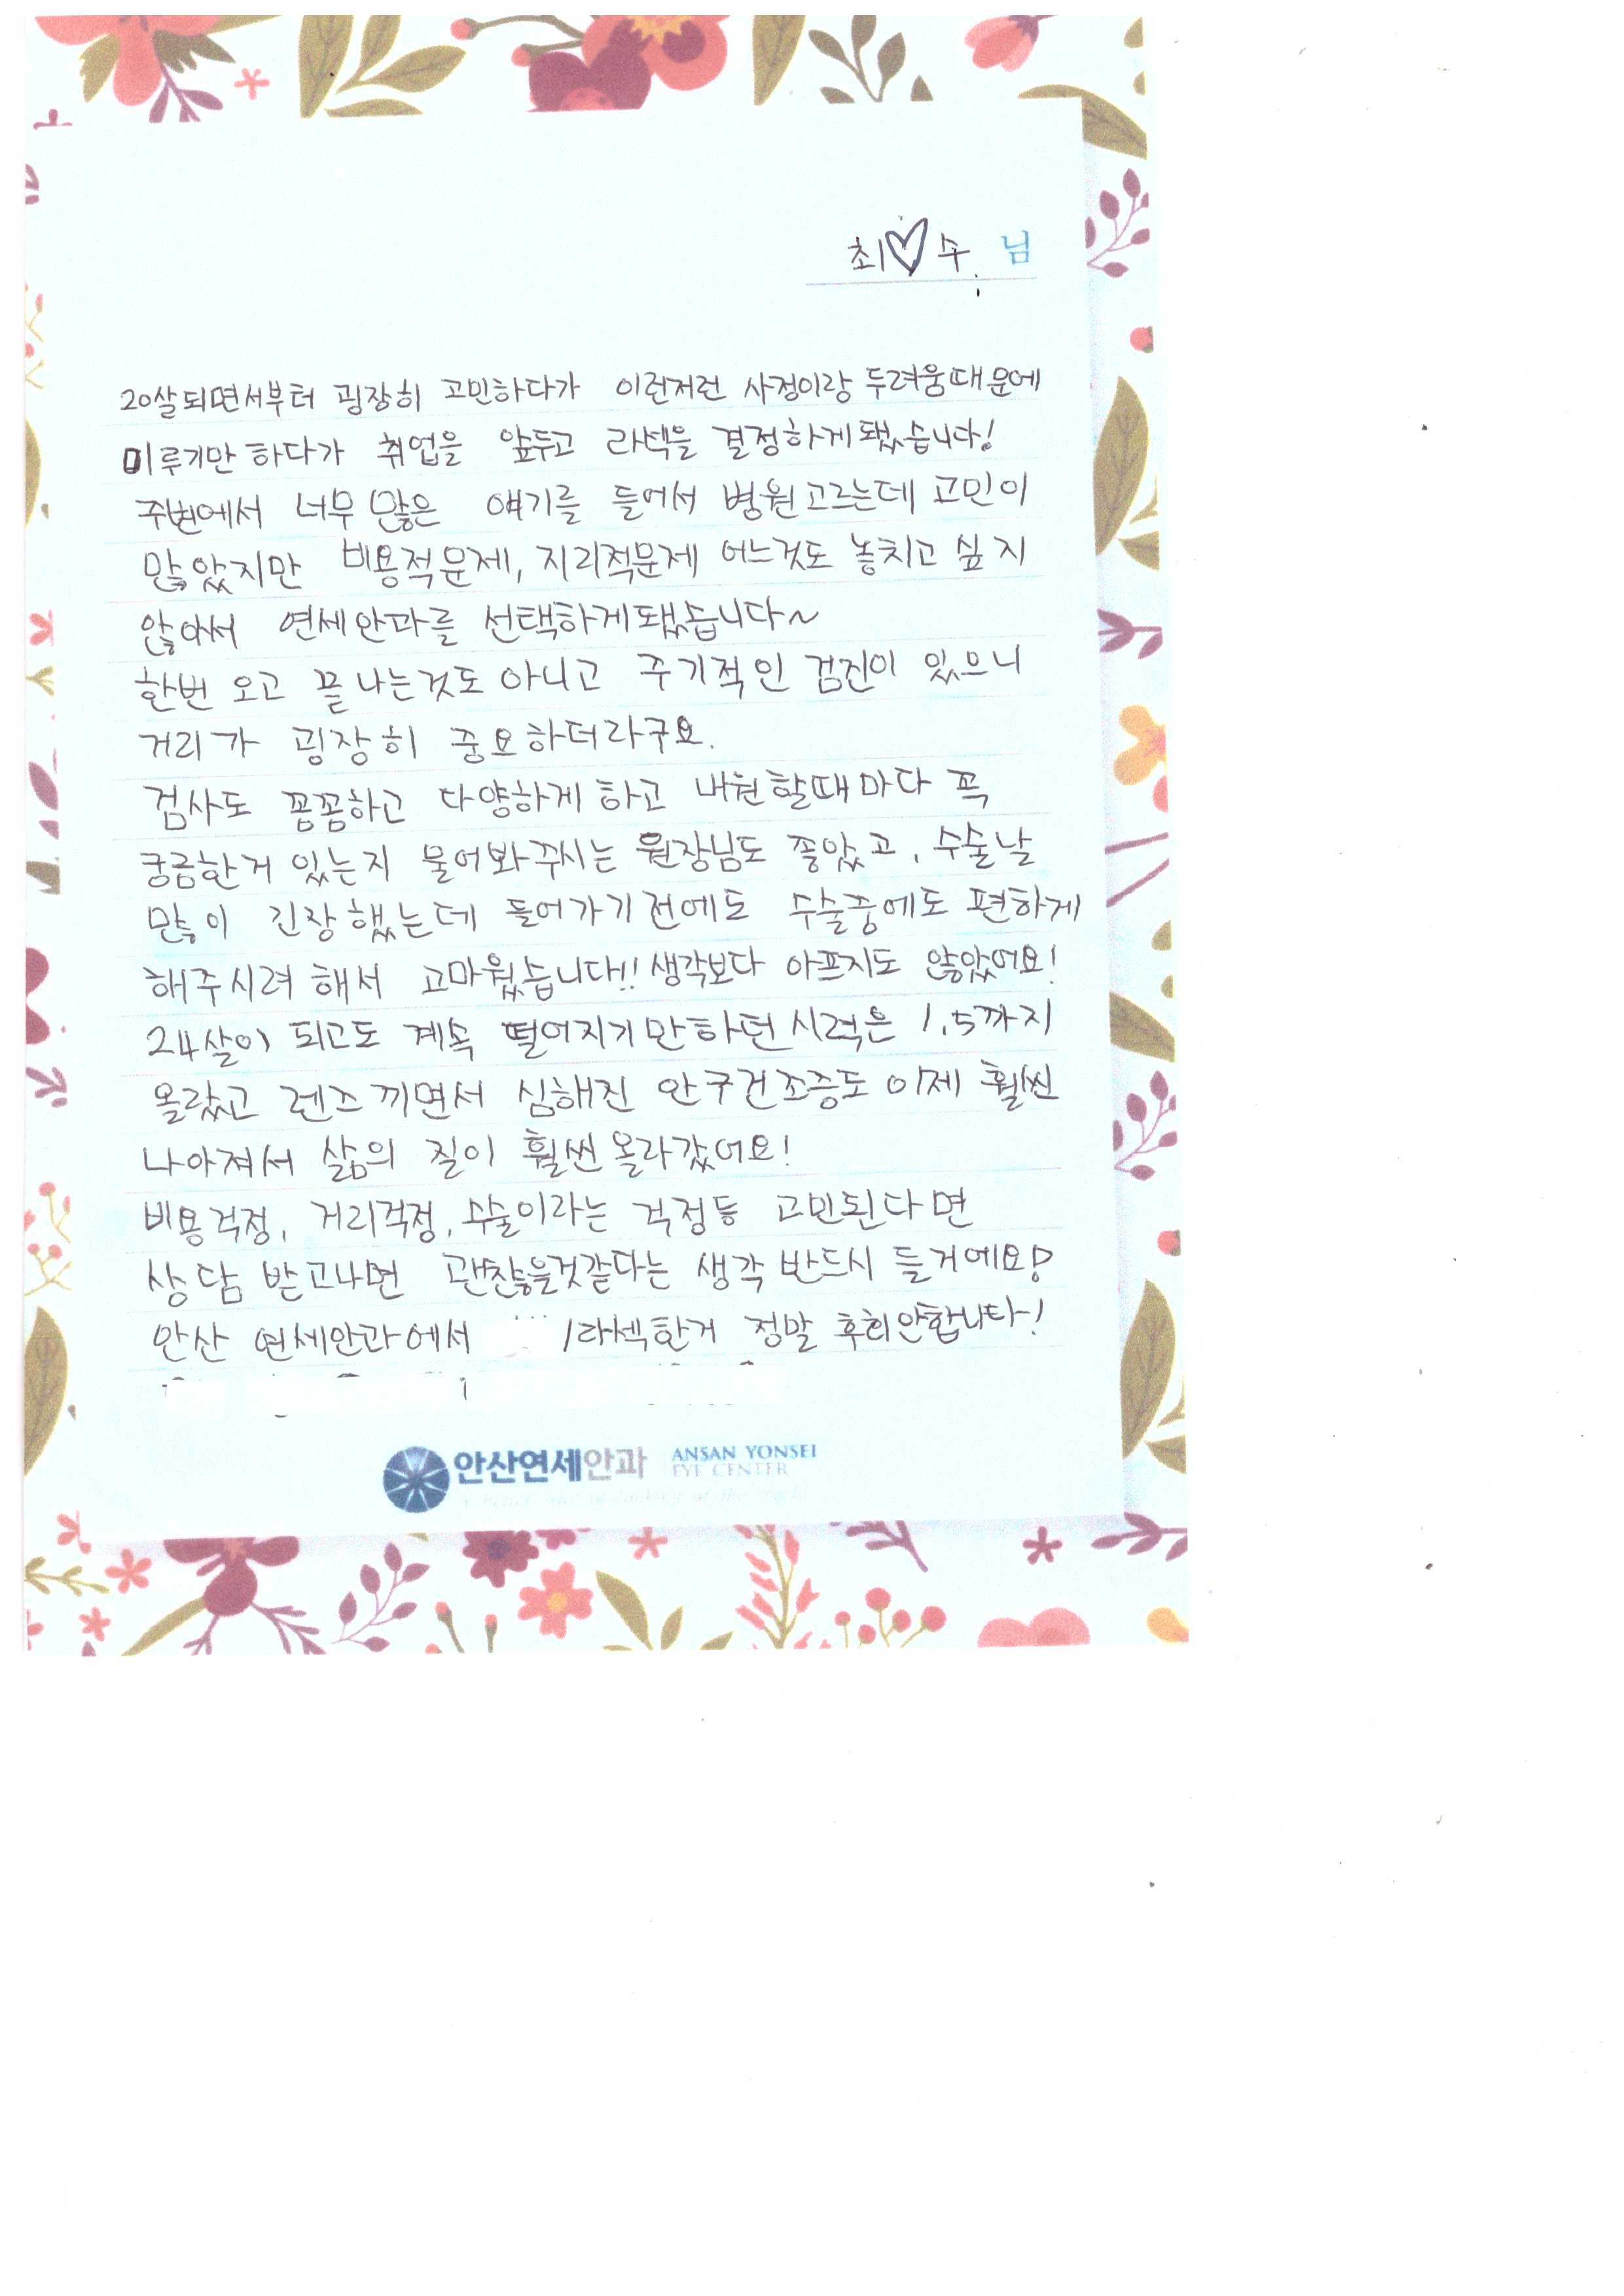 최♡수 님
20살되면서부터 굉장히 고민하다가 이런저런 사정이랑 두려움때문에
미루기만 하다가 취업을 앞두고 라섹을 결정하게됐습니다!
주변에서 너무 많은 얘기를 들어서 병원고르는데 고민이
많았지만 비용적문제, 지리적문제 어느것도 놓치고 싶지
않아서 연세안과를 선택하게됐습니다~
한번 오고 끝나는것도 아니고 주기적인 검진이 있으니
거리가 굉장히 중요하더라구요.
검사도 꼼꼼하고 다양하게 하고 내원할때마다 꼭
궁금한거 있는지 물어봐주시는 원장님도 좋았고, 수술날
많이 긴장했는데 들어가기전에도 수술중에도 편하게
해주시려 해서 고마웠습니다!! 생각보다 아프지도 않았어요!
24살이 되고도 계속 떨어지기만하던 시력은 1.5까지
올랐고 렌즈끼면서 심해진 안구건조증도 이제 훨씬
나아져서 삶의 질이 훨씬올라갔어요!
비용걱정, 거리걱정, 수술이라는 걱정등 고민된다면
상담 받고나면 괜찮을것같다는 생각 반드시 들거에요!
안산 연세안과에서 라섹한거 정말 후회안합니다!
안산연세안과 ANSAN YONSEI
EYE CENTER